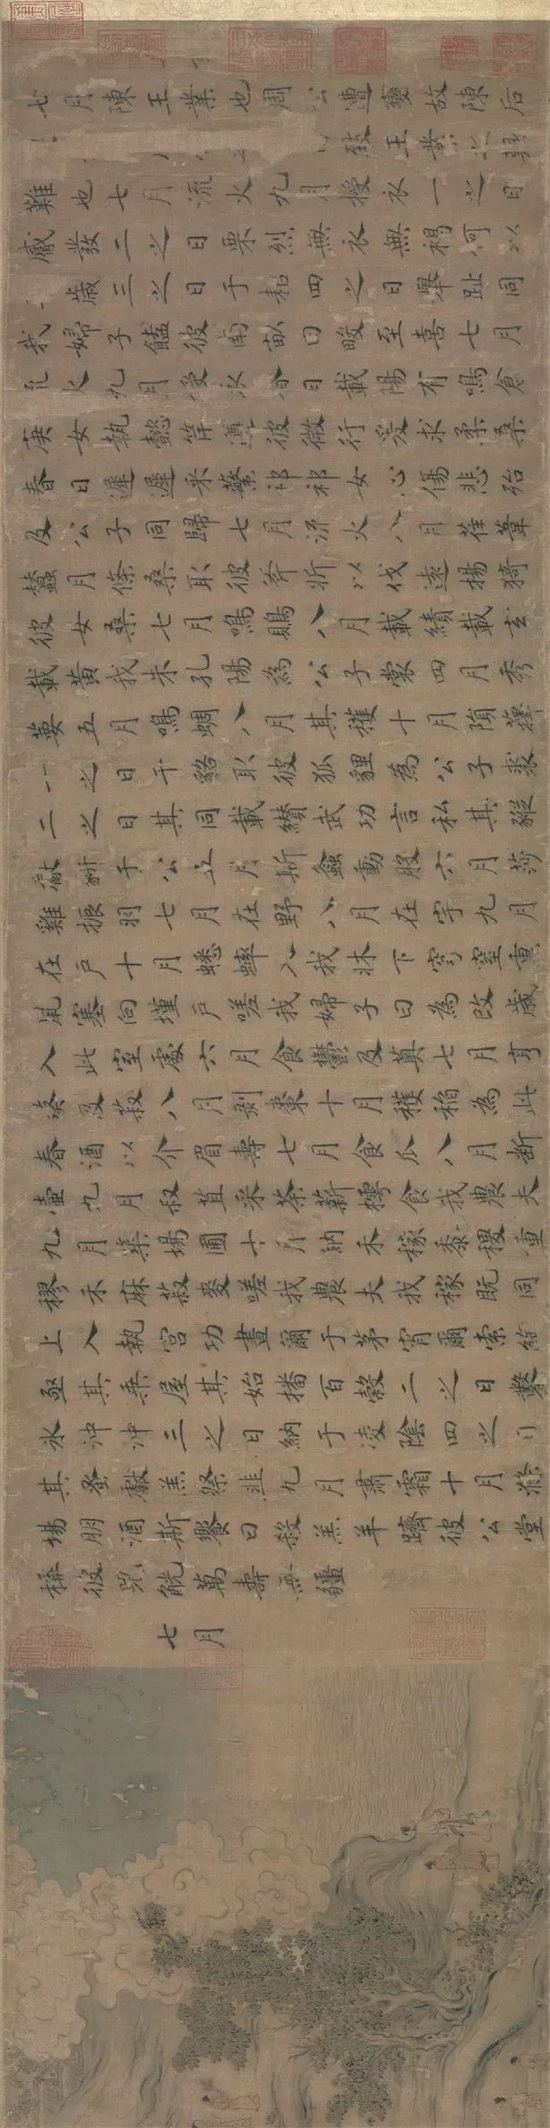 七月陳王業也周公遭變故陳后
致王業之艱
難也七月流火九月授衣一之日
觱發二之日栗烈無衣無褐何以
歲三之日于耜四之日舉趾同
我婦子饁彼南畝曰畯至喜七月
流火九月受衣春日載陽有鳴倉
庚女執懿筐遵彼微行爰求柔桑
春日遲遲采蘩祁祁女心傷悲殆
及公子同歸七月流火八月萑葦
蠶月條桑取彼斧斨以伐遠揚猗
彼女桑七月鳴鵙八月載績載玄
載黃我朱孔陽為公子裳四月秀
葽五月鳴蜩八月其穫十月隕蘀
一之日于貉取彼狐貍為公子裘
二之日其同載纘武功言私其豵
獻豜于公五月斯螽動股六月莎
雞振羽七月在野八月在宇九月
在戶十月蟋蟀入我牀下穹窒熏
鼠塞向墐戶嗟我婦子曰為改歲
入此室處六月食鬱及薁七月亨
葵及菽八月剝棗十月穫稻為此
春酒以介眉壽七月食瓜八月斷
壺九月叔苴采荼薪樗食我農夫
九月築場圃十月納禾稼黍稷重
穋禾麻菽麥嗟我農夫我稼既同
上入執宮功晝爾于茅宵爾索綯
亟其乘屋其始播百穀二之日鑿
冰沖沖三之日納于凌陰四之日
其蚤獻羔祭韭九月肅霜十月滌
場朋酒斯饗曰殺羔羊躋彼公堂
稱彼兕觥萬壽無疆
七月